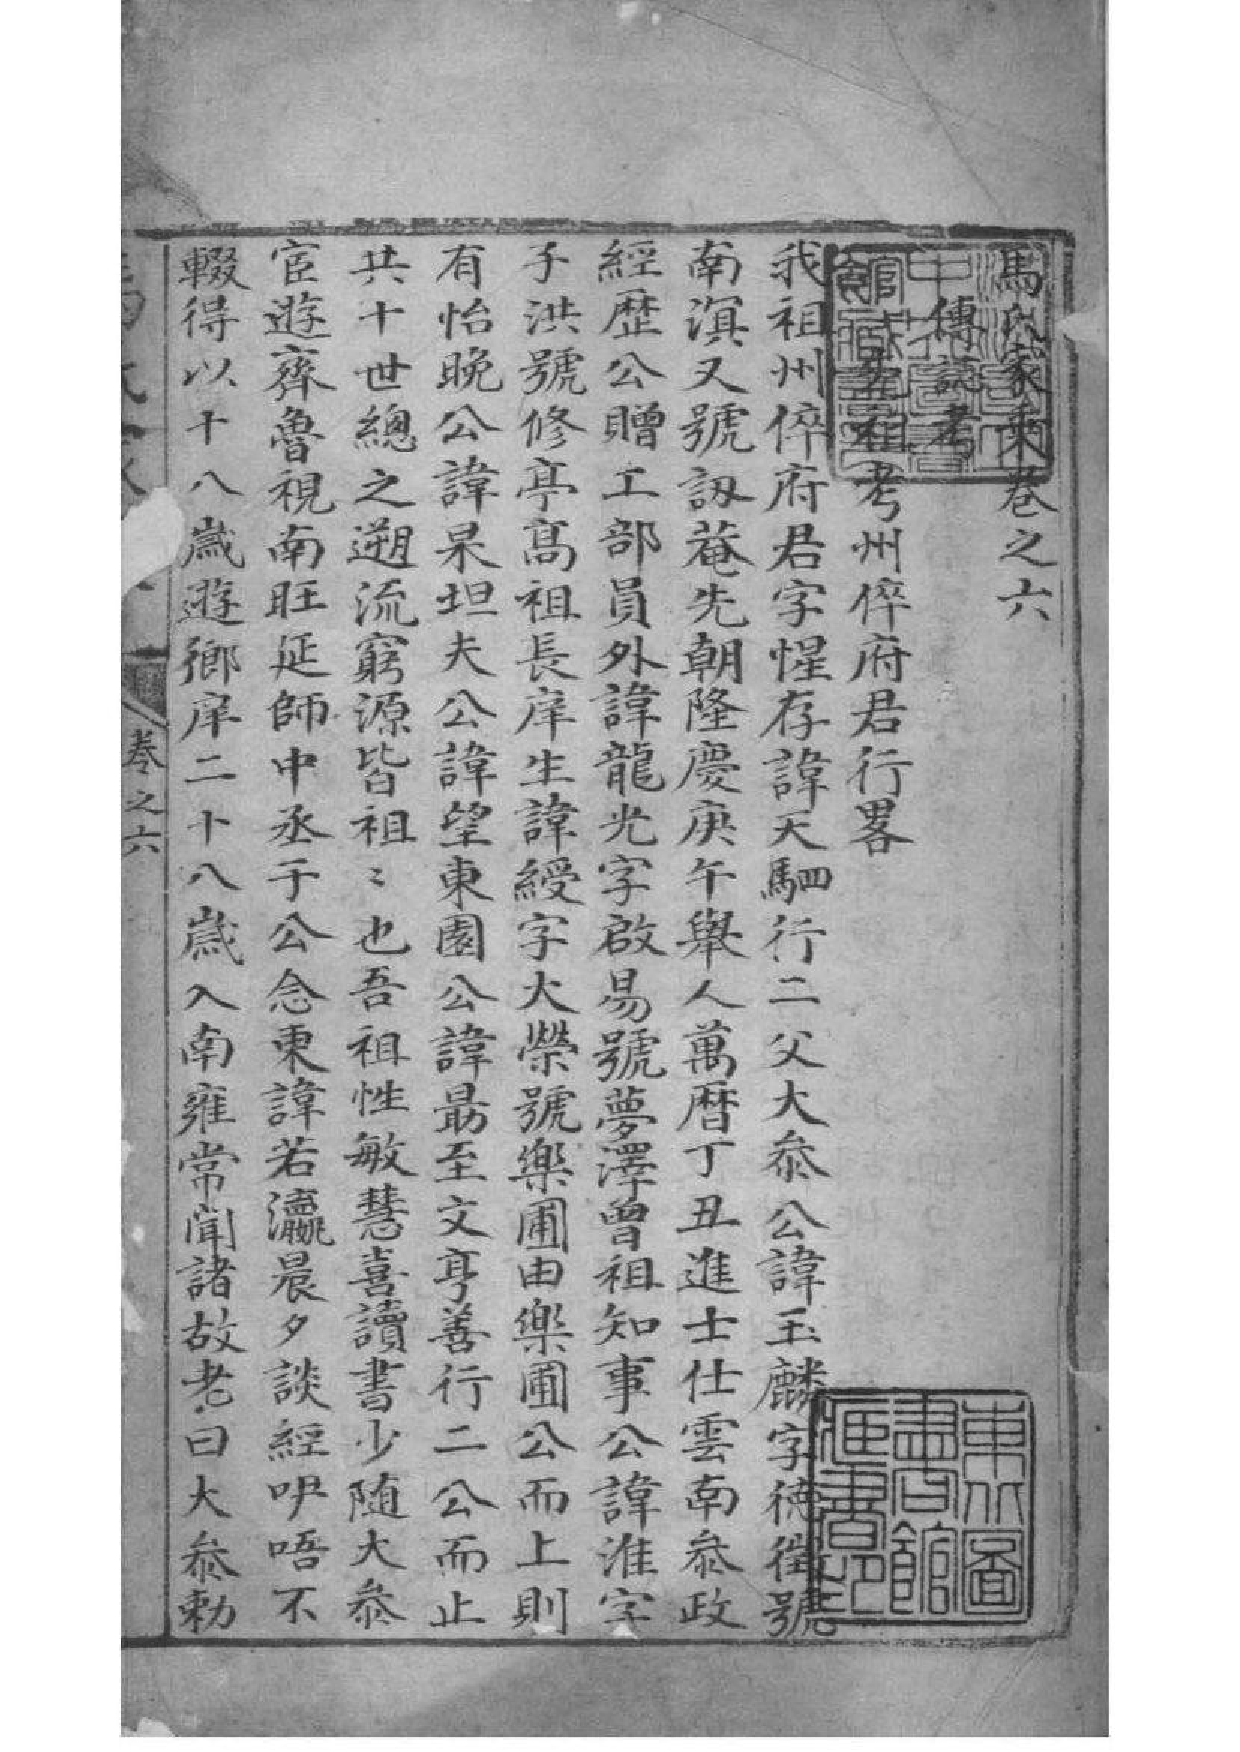 馬氏家乘卷之六
傳誌考
五祖考州倅府君行畧
我祖州倅府君字惺存諱天駟行二父大叅公諱玉麟字徳徴號
南溟又號訒菴先朝隆慶庚午舉人萬曆丁丑進士仕雲南叅政
經歴公贈工部員外諱龍光字啟易號夢澤曾祖知事公諱淮字
子洪號修亭髙祖長庠生諱綬字大榮號樂圃由樂圃公而上則
有怡晚公諱杲坦夫公諱望東園公諱最至文亨善行二公而止
共十世總之遡流窮源皆祖〻也吾祖性敏慧喜讀書少随大叅
宦遊齊魯視南旺延師中丞于公念東諱若瀛晨夕談經吚唔不
輟得以十八歲遊鄉庠二十八歲入南雍常聞諸故老曰大叅勅
卷之六
東北圖書館所藏善本